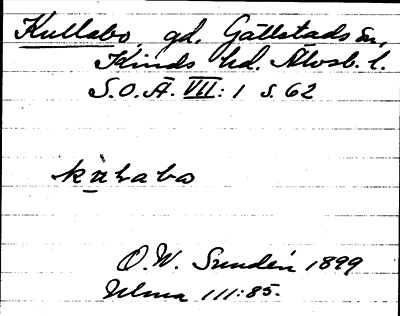 Kullabo, gd. Gällstads sn,
Kinds hd. Älvsb. l.
S.O.Ä. VII: 1 s. 62
O.W. Sundén 1899
Ulma 111:85.